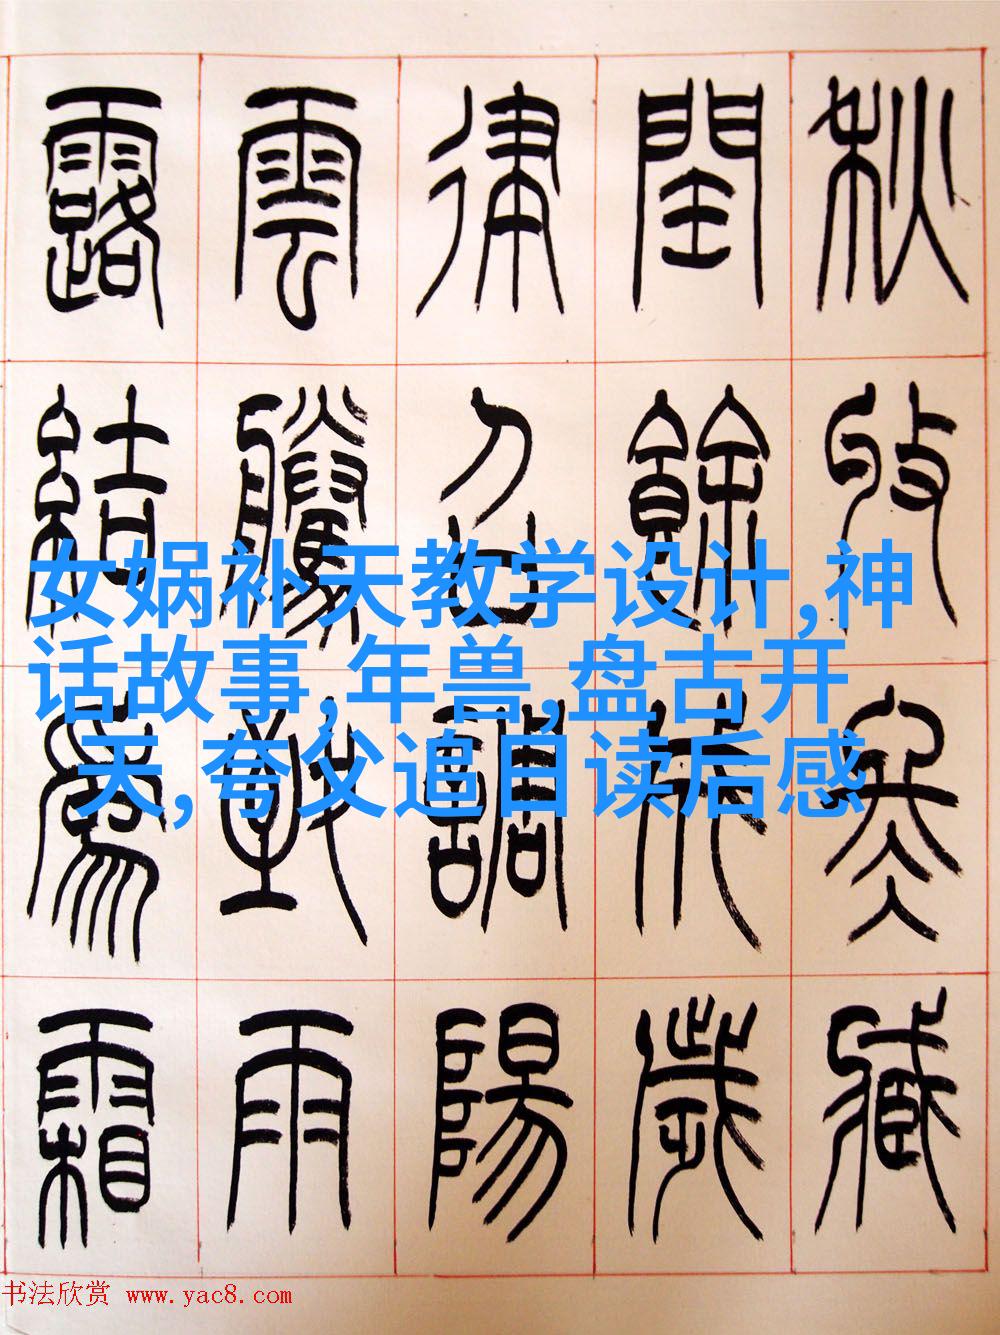 秋收冬藏
閏餘成歲
律召調陽
雲騰致雨
露結爲霜
女娲补天教学设计,神
话故事,年兽,盘古开
天,夸父追日读后感
书法欣赏 www.yac8.com